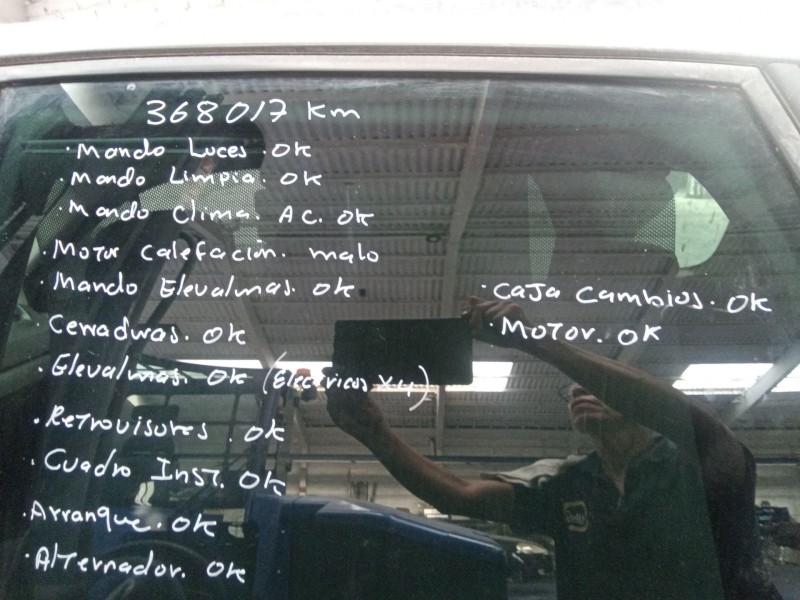 368017 Km
· Mando Luces. OK
· Mando Limpia. OK
· Mando Clima. AC. OK
· Motor Calefacion. malo
· Mando Elevalunas. OK
· Cerraduras. OK
· Elevalunas. OK (Electricos x4)
· Retrovisores. OK
· Cuadro Inst. OK
· Arranque. OK
· Alternador. OK
· Caja Cambios. OK
· Motor. OK